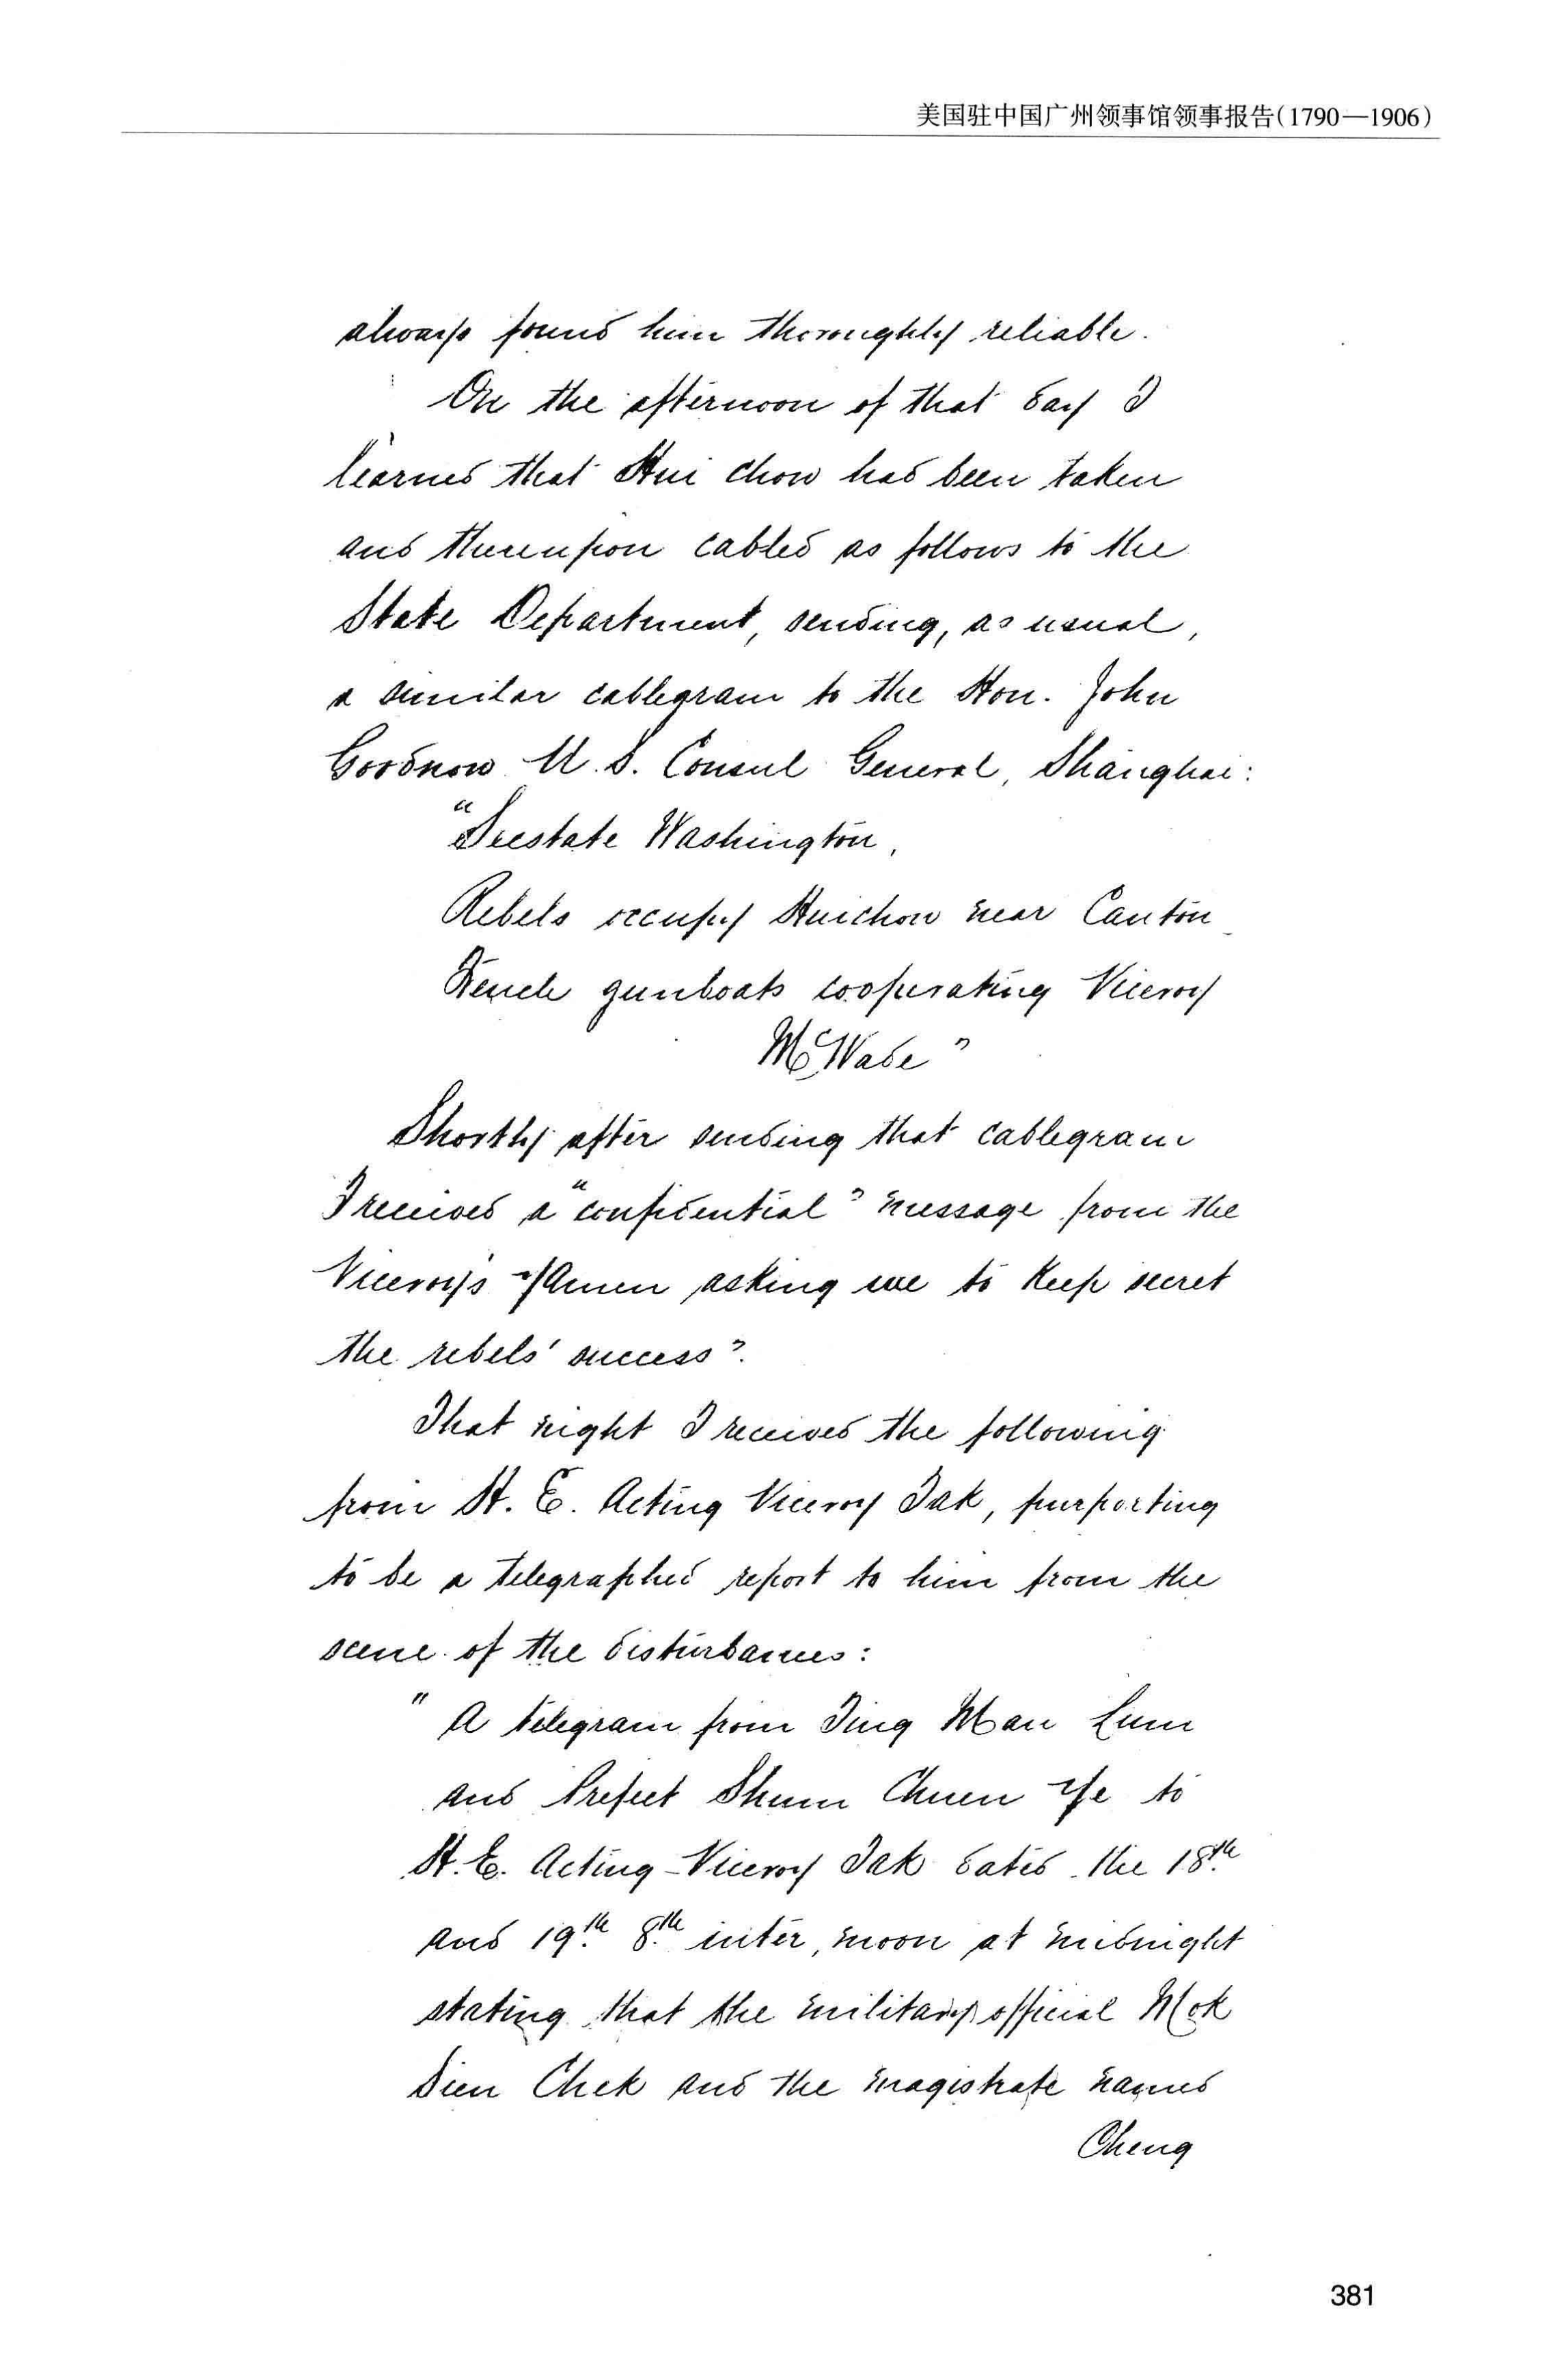 美国驻中国广州领事馆领事报告(1790—1906)
always found him thoroughly reliable.
On the afternoon of that day I
learned that Hui Chow had been taken
and thereupon cabled as follows to the
State Department, sending, as usual,
a similar cablegram to the Hon. John
Goodnow U. S. Consul General, Shanghai:
"Secstate Washington,
Rebels occupy Huichow near Canton
French gunboats cooperating Viceroy
McWade"
Shortly after sending that cablegram
I received a "confidential" message from the
Viceroy's Yamen asking me to keep secret
the rebels' success".
That night I received the following
from H. E. Acting Viceroy Tak, purporting
to be a telegraphed report to him from the
scene of the disturbances:
"A telegram from Ting Man Lum
and Prefect Shum Chuen Ye to
H. E. Acting-Viceroy Tak dated the 18th.
and 19th. 8th. inter, moon at midnight
stating that the military official Mok
Sien Chek and the magistrate named
Cheng
381